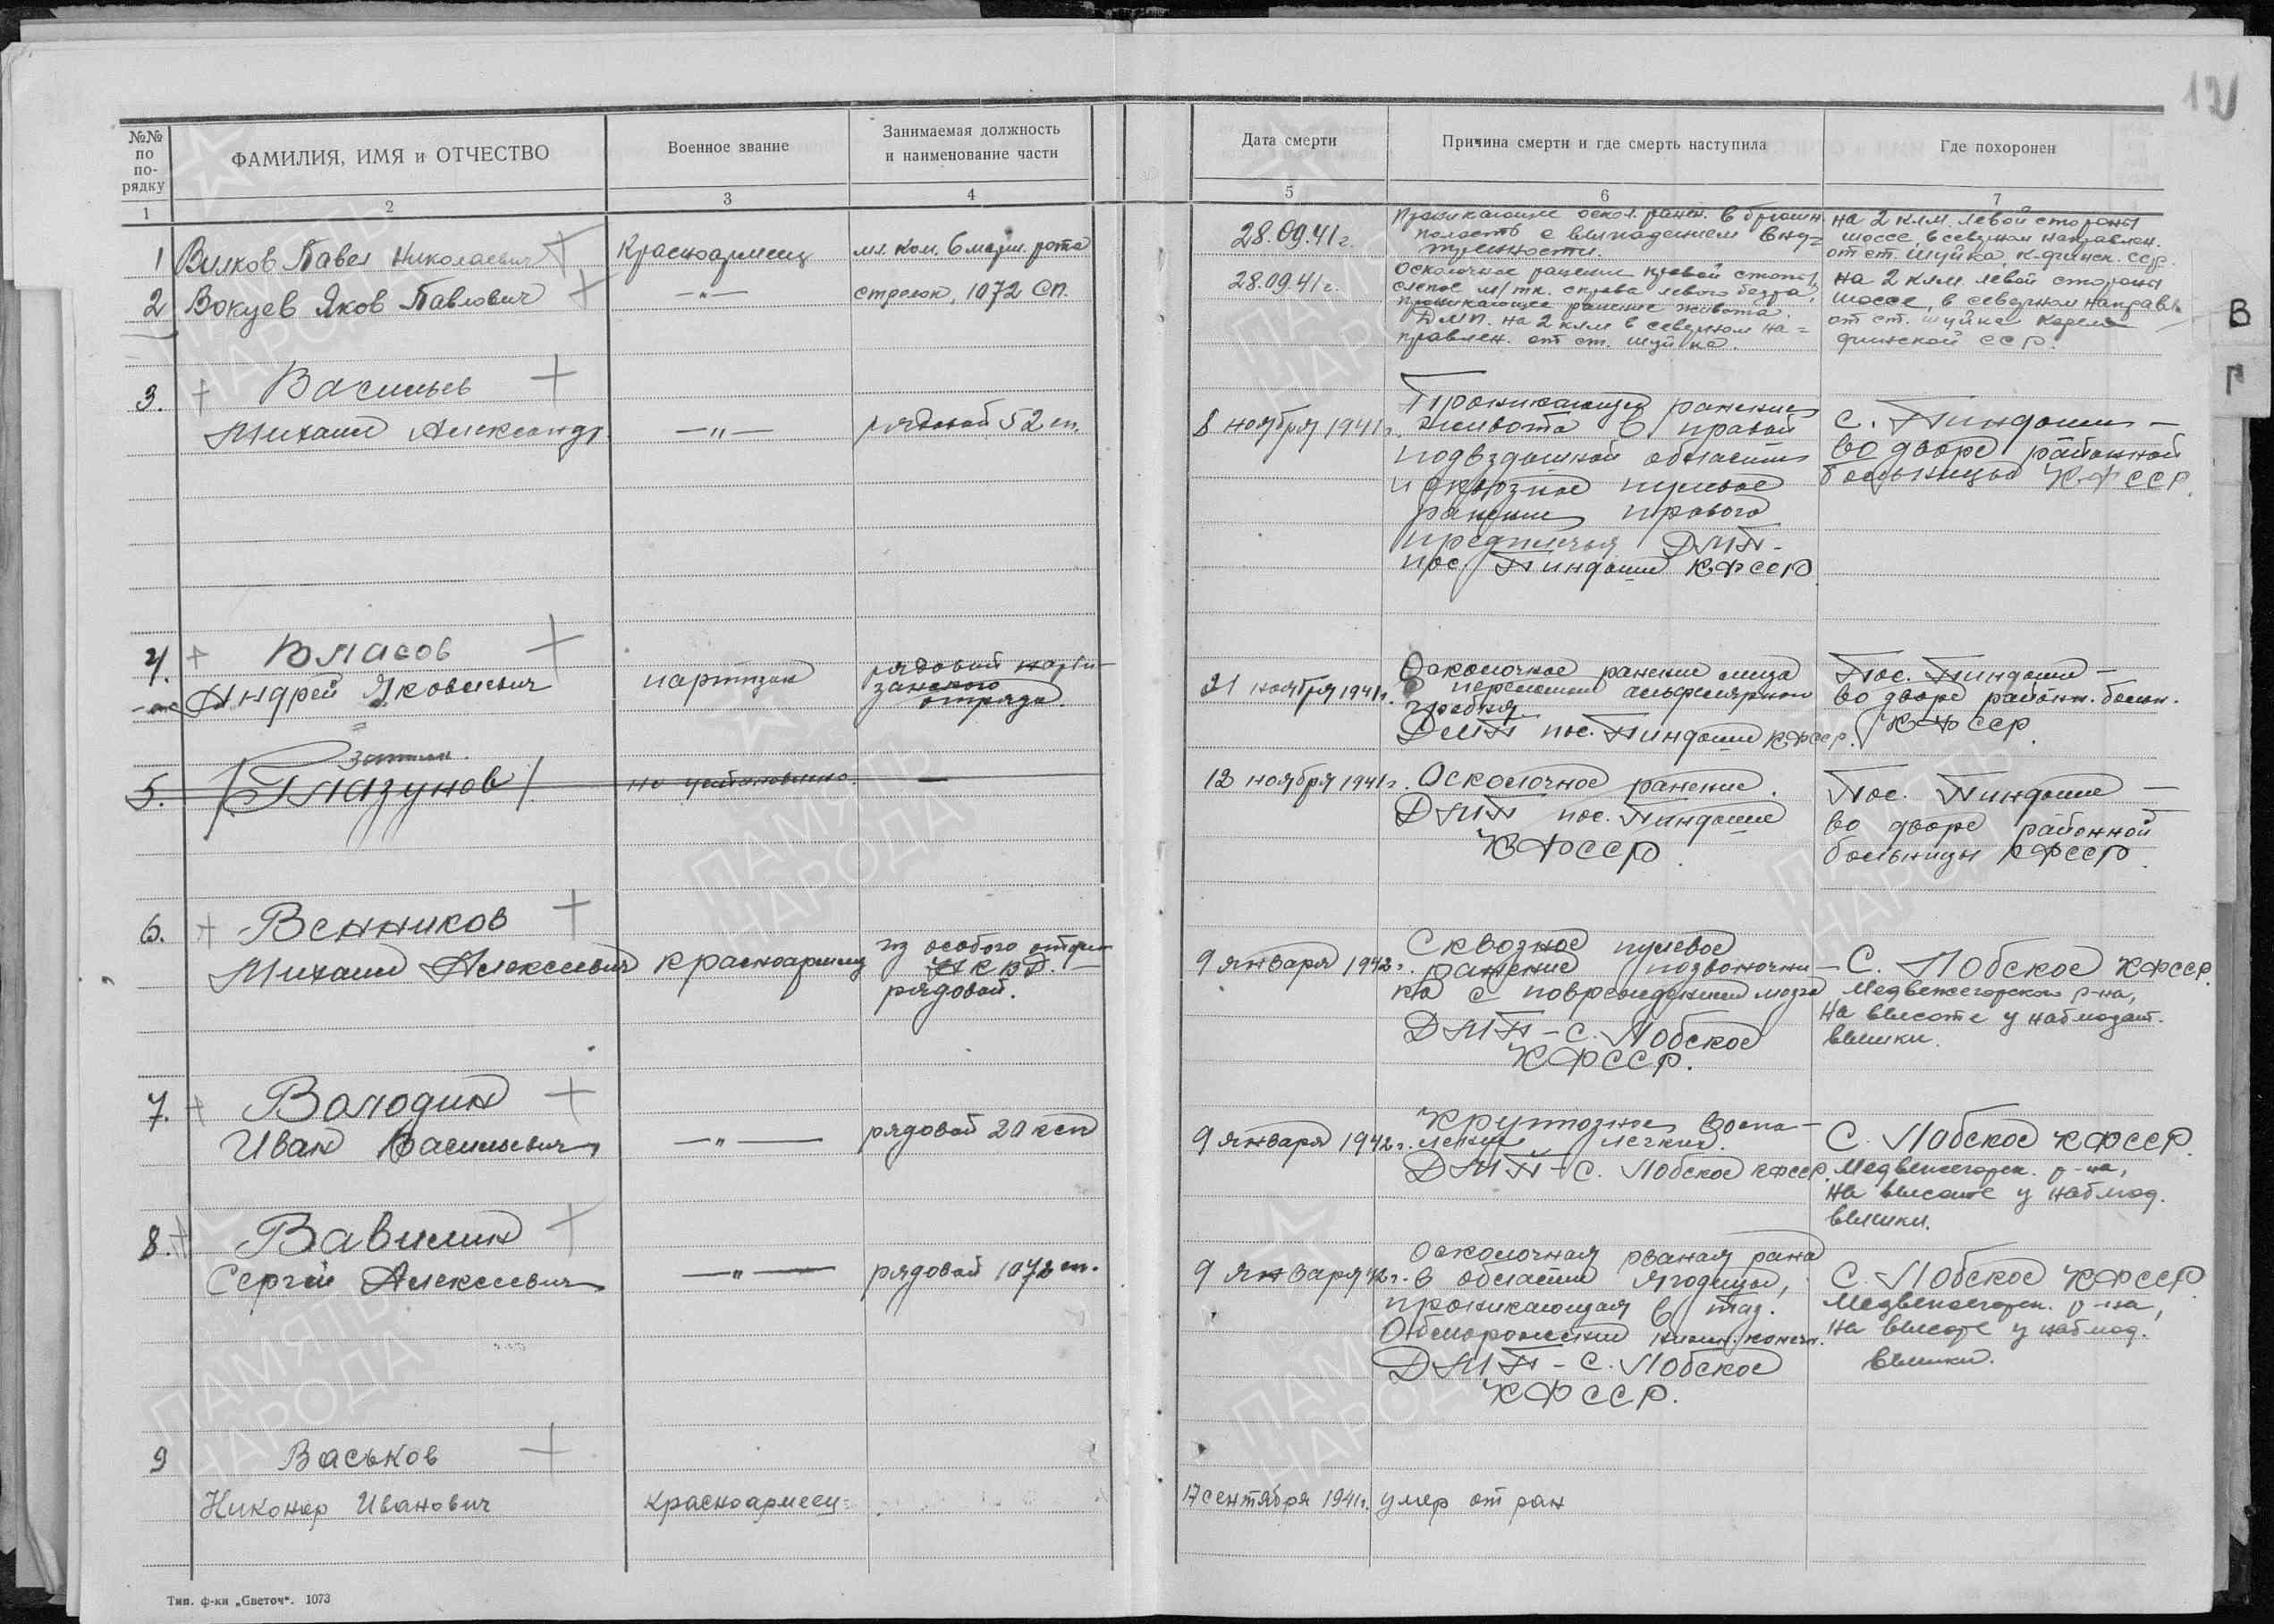 12
№№ по по-рядку
ФАМИЛИЯ, ИМЯ и ОТЧЕСТВО
Военное звание
Занимаемая должность
и наименование части
Дата смерти
Причина смерти и где смерть наступила
Где похоронен
1 2 3 4 5 6 7
1 Вилков Павел Николаевич
Красноармеец
мл. ком. 6 марш. рота
28.09.41г.
Проникающие оскол. ранен. в брюшн.
полость с выпадением вну=
тренности.
на 2 клм. левой стороны
шоссе, в северном направлен.
от ст. Шуйка К-финск. ССР.
2 Вокуев Яков Павлович
—"—
стрелок, 1072 СП.
28.09.41г.
Осколочное ранение правой стопы,
слепое м/тк. справа левого бедра,
проникающее ранение живота.
ДМП. на 2 клм в северном на=
правлен. от ст. Шуйка.
на 2 клм. левой стороны
шоссе, в северном направл.
от ст. Шуйка Карело
финской ССР.
В
Г
3. Васильев
Михаил Александр.
—"—
рядовой 52 сп.
8 ноября 1941г.
Проникающее ранение
живота в правой
подвздошной области
и сквозное пулевое
ранение правого
предплечья ДМП-
пос. Пиндоши КФССР
с. Пиндоши —
во дворе районной
больницы КФССР.
4. Власов
Андрей Яковлевич
партизан
рядовой парти-
занского
отряда.
21 ноября 1941г.
Осколочное ранение лица
с переломом альфеолярного
гребня.
ДМП пос. Пиндоши КФССР.
Пос. Пиндоши —
во дворе районн. больн.
КФССР.
5. Глазунов
не установлено
—
12 ноября 1941г.
Осколочное ранение.
ДМП пос. Пиндоши
КФССР.
Пос. Пиндоши —
во дворе районной
больницы КФССР.
6. Венников
Михаил Алексеевич
красноармеец
из особого отдела
НКВД. —
рядовой.
9 января 1942г.
Сквозное пулевое
ранение позвоночни—
ка с повреждением мозга
ДМП – с. Лобское
КФССР.
С. Лобское КФССР.
Медвежегорского р-на,
на высоте у наблюдат.
вышки.
7. Володин
Иван Васильевич
—"—
рядовой 20 ксп
9 января 1942г.
Крупозное воспа—
ление легких.
ДМП – с. Лобское КФССР.
С. Лобское КФССР.
Медвежегорск. р-на,
на высоте у наблюд.
вышки.
8. Вавилин
Сергей Алексеевич
—"—
рядовой 1072 сп.
9 января 42г.
Осколочная рваная рана
в области ягодицы,
проникающая в таз.
Обморожении нижн. конечн.
ДМП – с. Лобское
КФССР.
С. Лобское КФССР
Медвежегорск. р-на,
на высоте у наблюд.
вышки.
9 Васьков
Никонор Иванович
красноармеец
17 сентября 1941г.
умер от ран
Тип. ф-ки „Светоч“. 1073
ПАМЯТЬ
НАРОДА